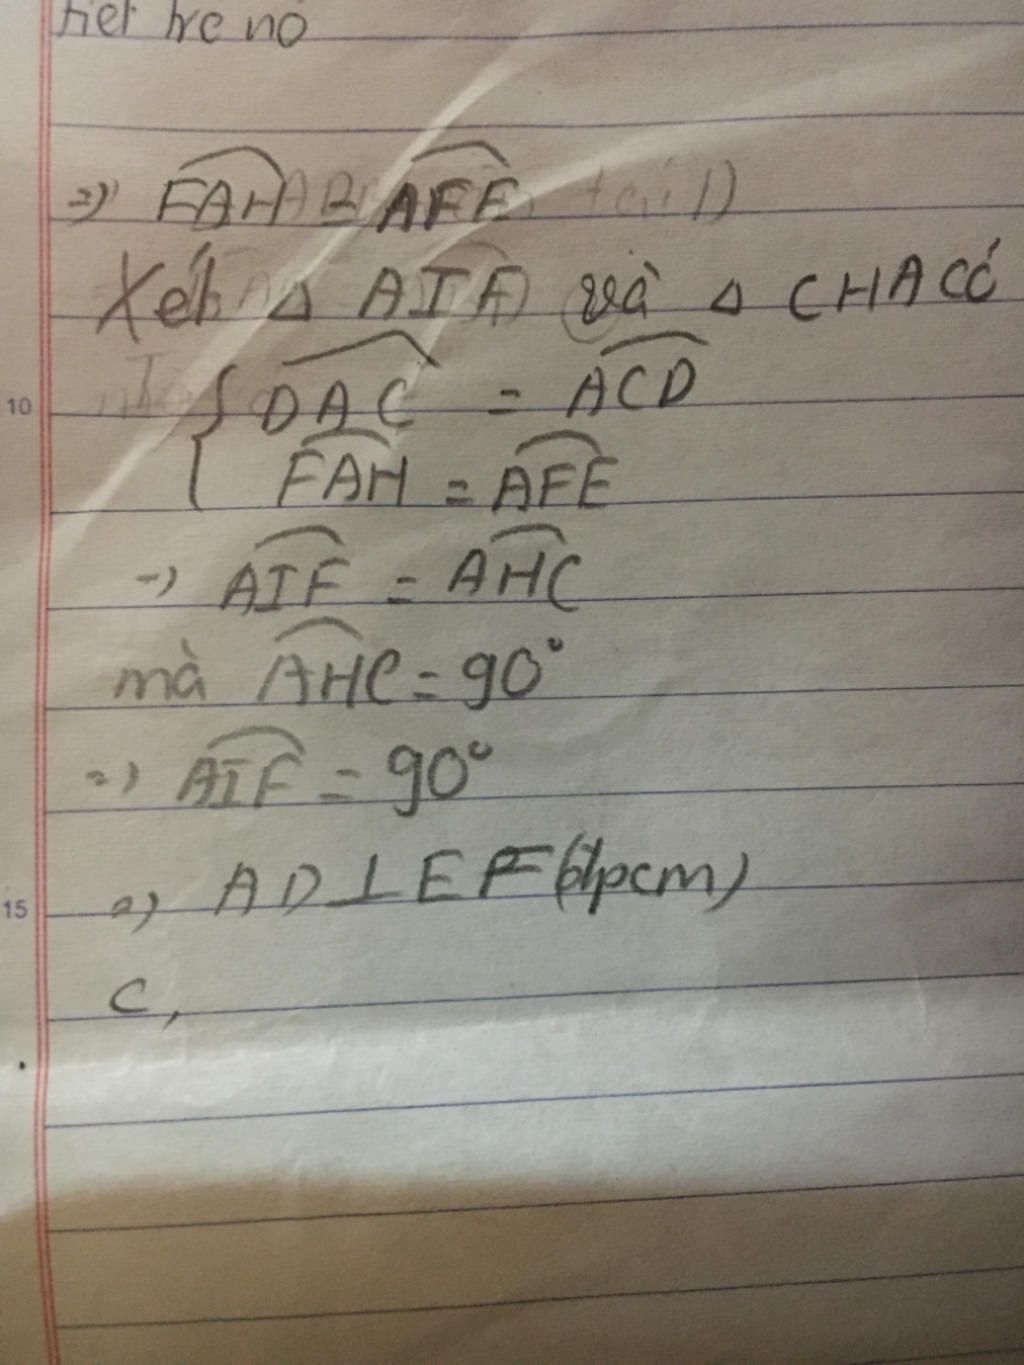 tiet tre nó
=> FAH = AFE
Xét Δ AIF và Δ CHA Có
10
DAC = ACD
FAH = AFE
=> AIF = AHC
mà AHC = 90°
=> AIF = 90°
15
=> AD ⊥ EF (đpcm)
C,